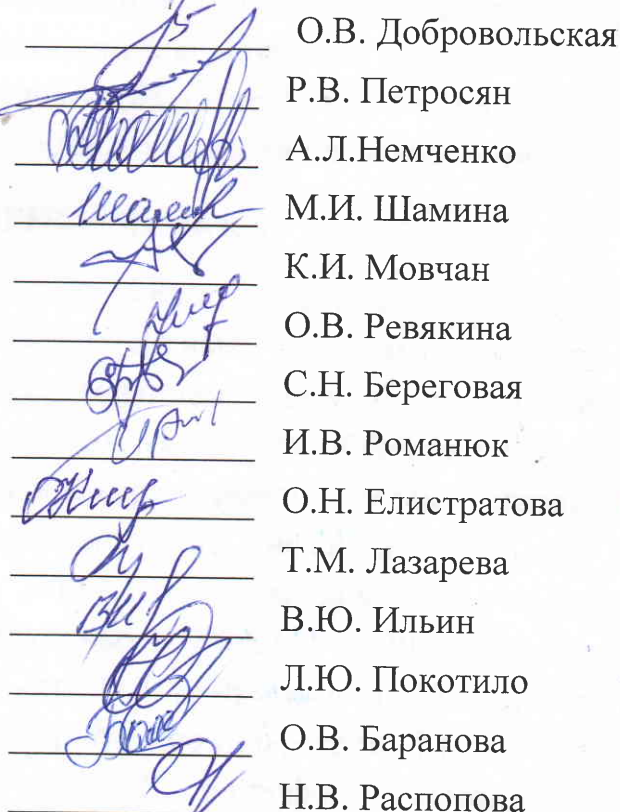 О.В. Добровольская
Р.В. Петросян
А.Л.Немченко
М.И. Шамина
К.И. Мовчан
О.В. Ревякина
С.Н. Береговая
И.В. Романюк
О.Н. Елистратова
Т.М. Лазарева
В.Ю. Ильин
Л.Ю. Покотило
О.В. Баранова
Н.В. Распопова